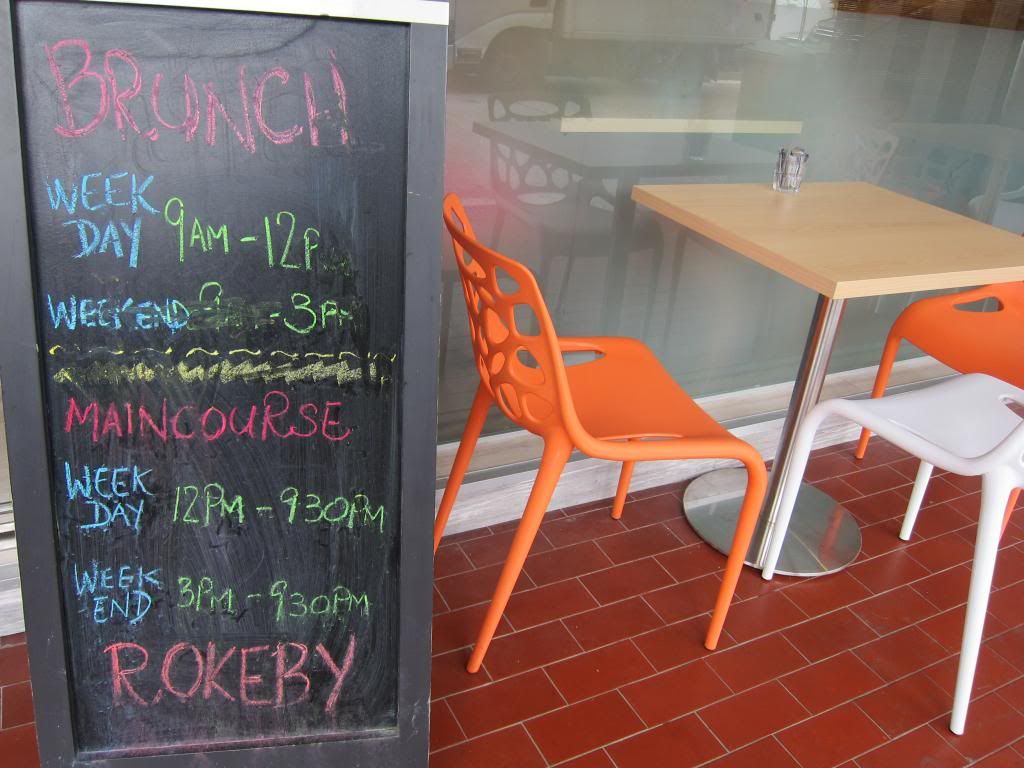 BRUNCH
WEEK
DAY 9AM - 12P
WEEKEND - 3PM
MAINCOURSE
WEEK
DAY 12PM - 930PM
WEEK
END 3PM - 930PM
ROKEBY